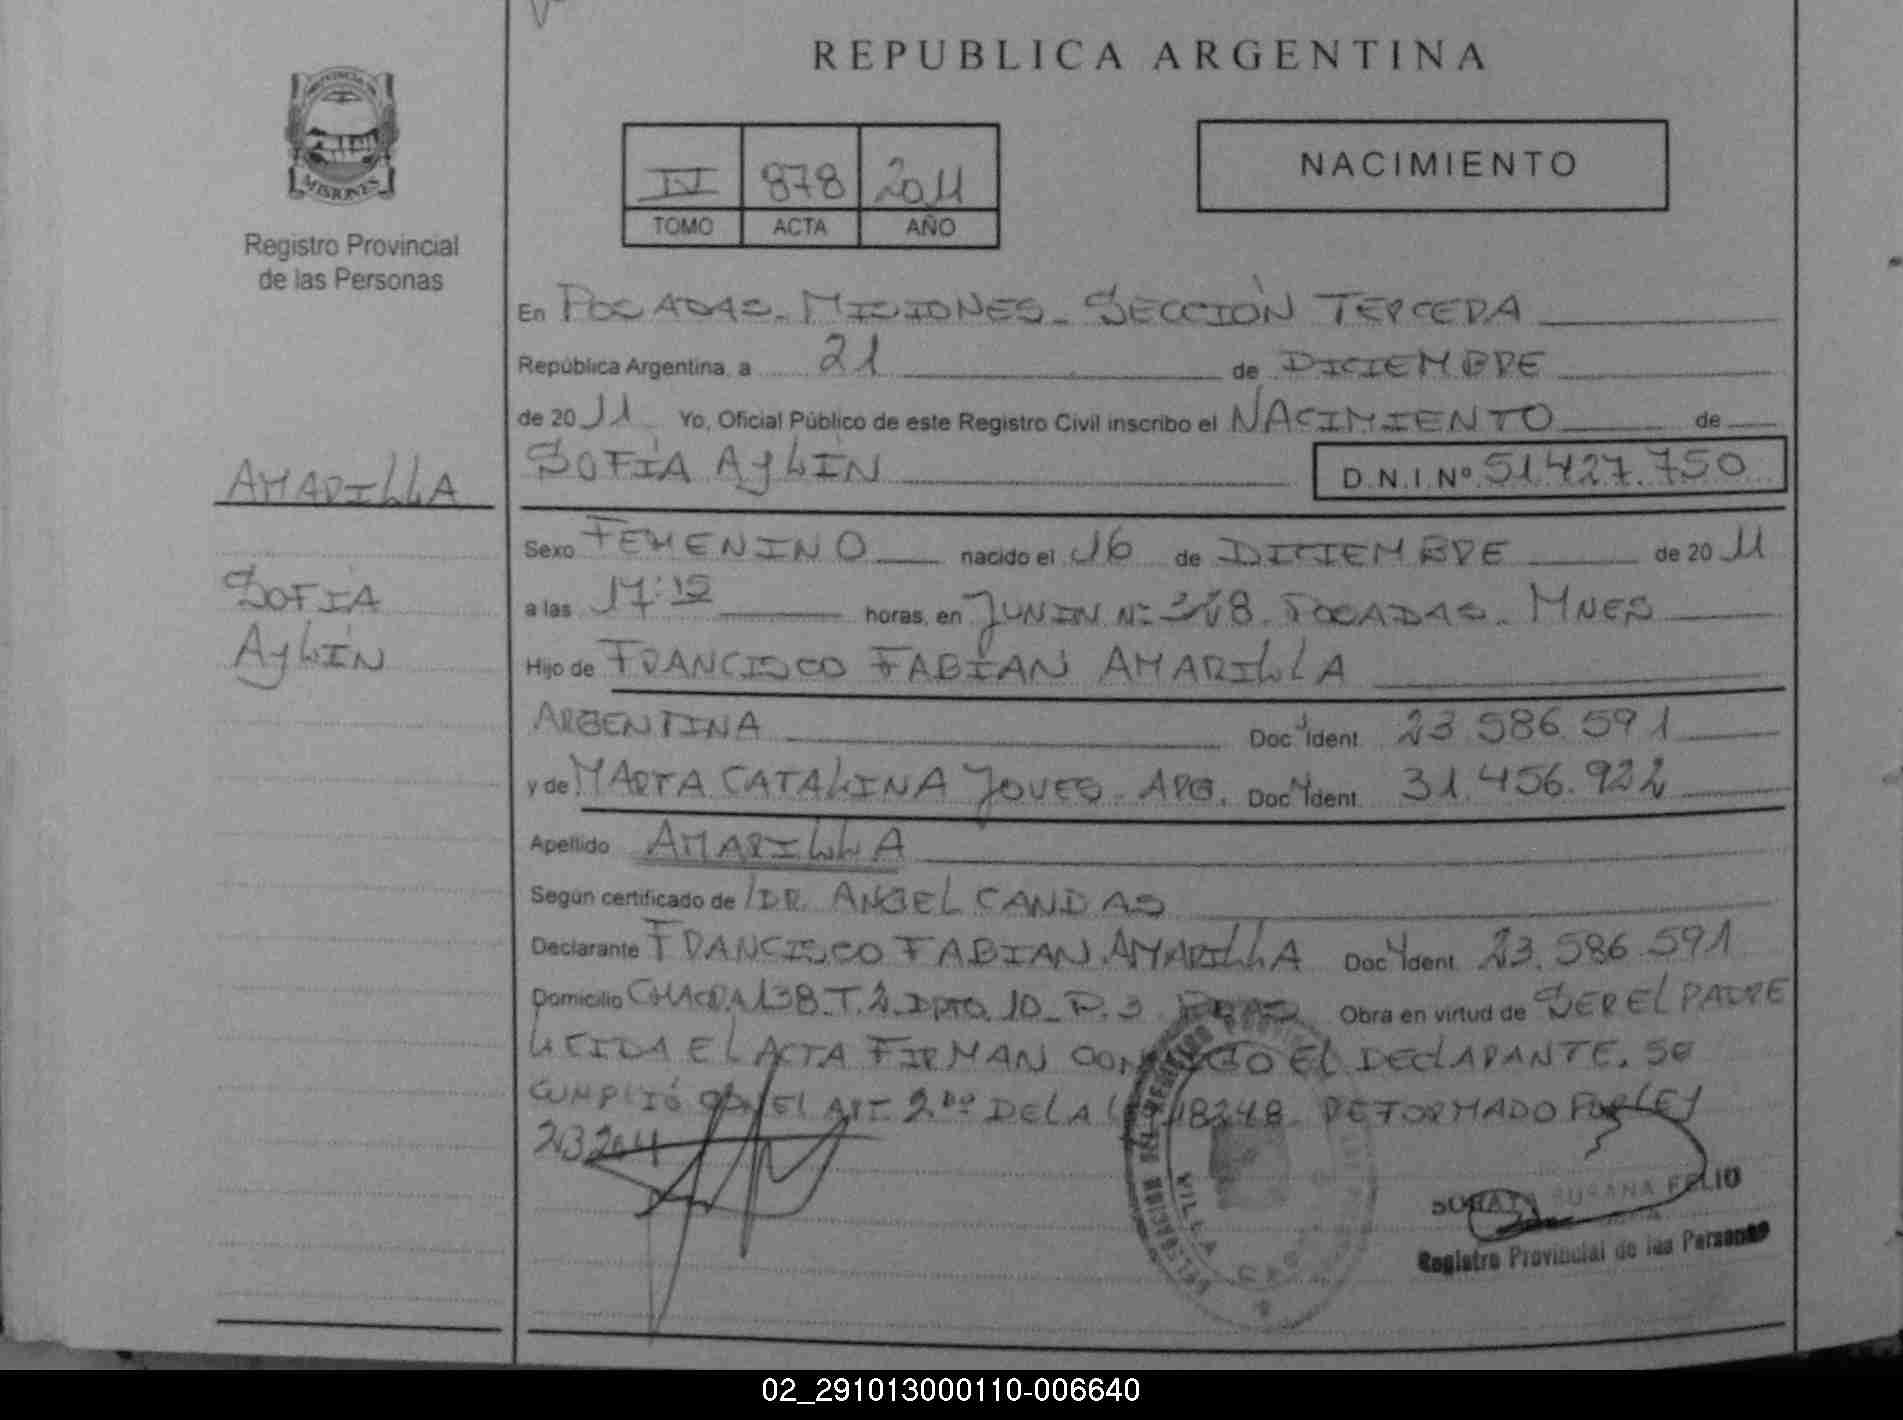 REPUBLICA ARGENTINA
PROVINCIA DE
MISIONES
Registro Provincial
de las Personas
IV 878 2011
TOMO ACTA AÑO
NACIMIENTO
En POSADAS - MISIONES - SECCIÓN TERCERA
República Argentina, a 21 de DICIEMBRE
de 2011 Yo, Oficial Público de este Registro Civil inscribo el NACIMIENTO de
SOFÍA AYLÍN D.N.I. Nº 51.427.750
AMARILLA
SOFÍA
AYLÍN
Sexo FEMENINO nacido el 16 de DICIEMBRE de 2011
a las 17:15 horas, en JUNIN Nº POSADAS - MNES
Hijo de FRANCISCO FABIAN AMARILLA
ARGENTINA Doc. Ident. 23.586.591
y de MARTA CATALINA JOVES - ARG. Doc. Ident. 31.456.922
Apellido AMARILLA
Según certificado de DR. ANGEL CANDAS
Declarante FRANCISCO FABIAN AMARILLA Doc. Ident. 23.586.591
Domicilio CHACRA 138 - T. 2 - DPTO. 10 - P. 3 Obra en virtud de SER EL PADRE
LEIDA EL ACTA FIRMAN CONMIGO EL DECLARANTE. SE
CUMPLIÓ CON EL ART. 2DO DE LA 18248 REFORMADO POR LEY
23264
VILLA
SUSANA FELIO
Registro Provincial de las Personas
02_291013000110-006640